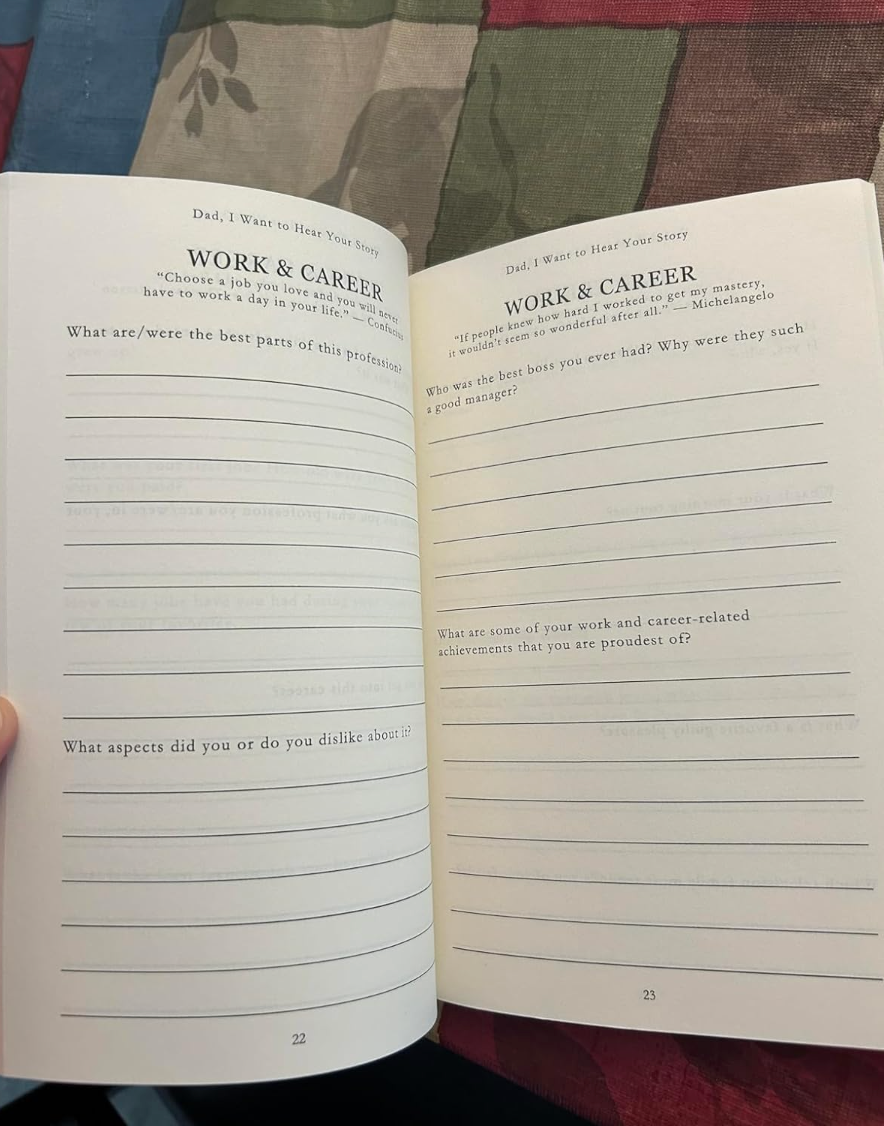 Dad, I Want to Hear Your Story
WORK & CAREER
“Choose a job you love and you will never
have to work a day in your life.” — Confucius
What are/were the best parts of this profession?
What aspects did you or do you dislike about it?
22
Dad, I Want to Hear Your Story
WORK & CAREER
“If people knew how hard I worked to get my mastery,
it wouldn’t seem so wonderful after all.” — Michelangelo
Who was the best boss you ever had? Why were they such
a good manager?
What are some of your work and career-related
achievements that you are proudest of?
23